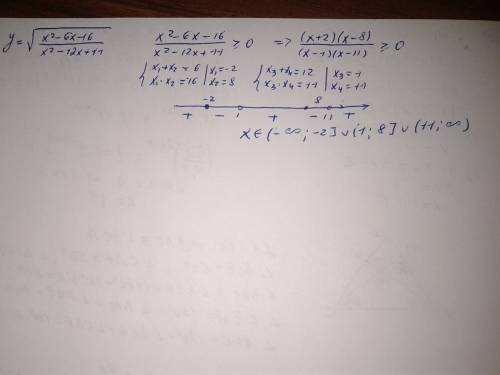 y=√((x²-6x-16)/(x²-12x+11))   (x²-6x-16)/(x²-12x+11) ≥ 0 => ((x+2)(x-8))/((x-1)(x-11)) ≥ 0
{x₁+x₂=6 | x₁=-2   {x₃+x₄=12 | x₃=1
{x₁·x₂=16 | x₂=8   {x₃·x₄=11 | x₄=11
-2 8
+ - 1 + - 11 +
x∈(-∞;-2]∪(1;8]∪(11;∞)